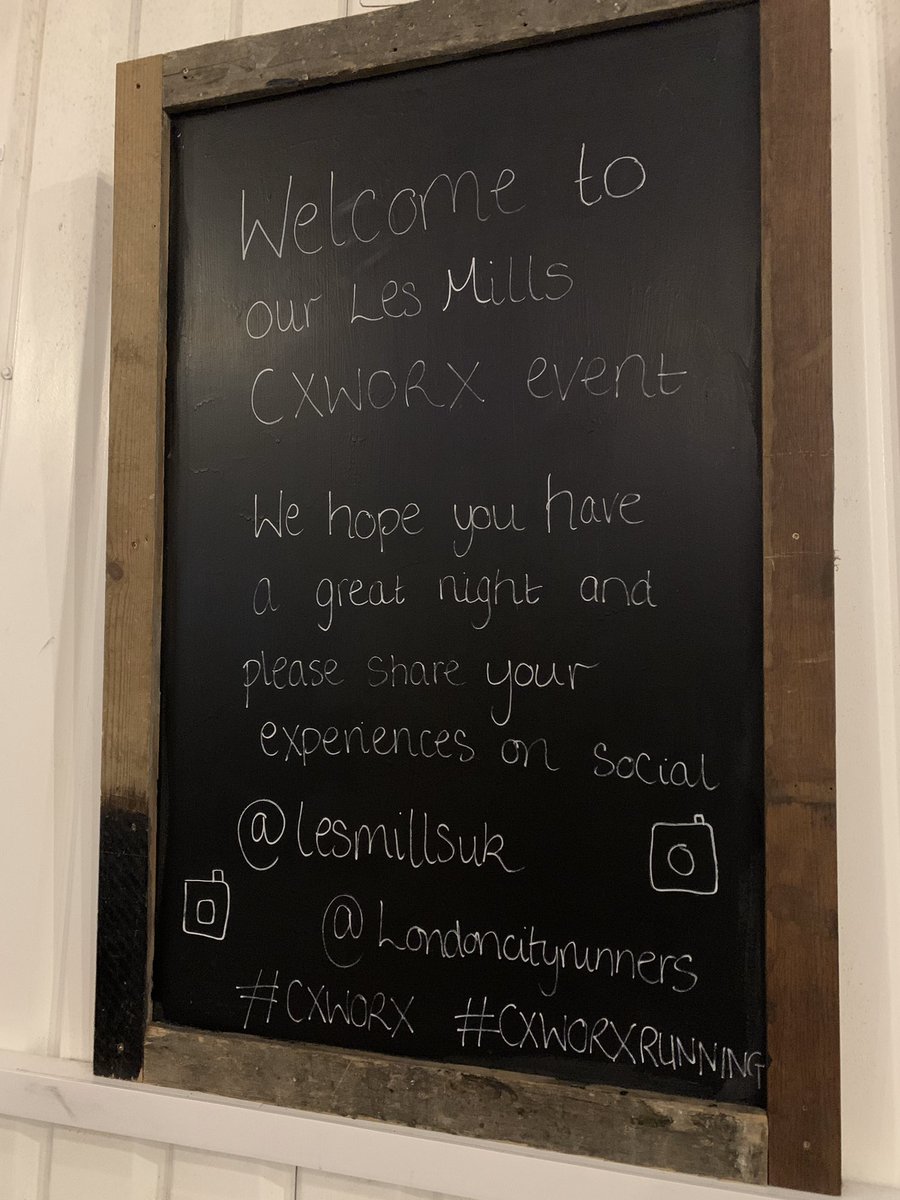 Welcome to
our Les Mills
CXWORX event
We hope you have
a great night and
please share your
experiences on social
@lesmillsuk
@Londoncityrunners
#CXWORX #CXWORXRUNNING